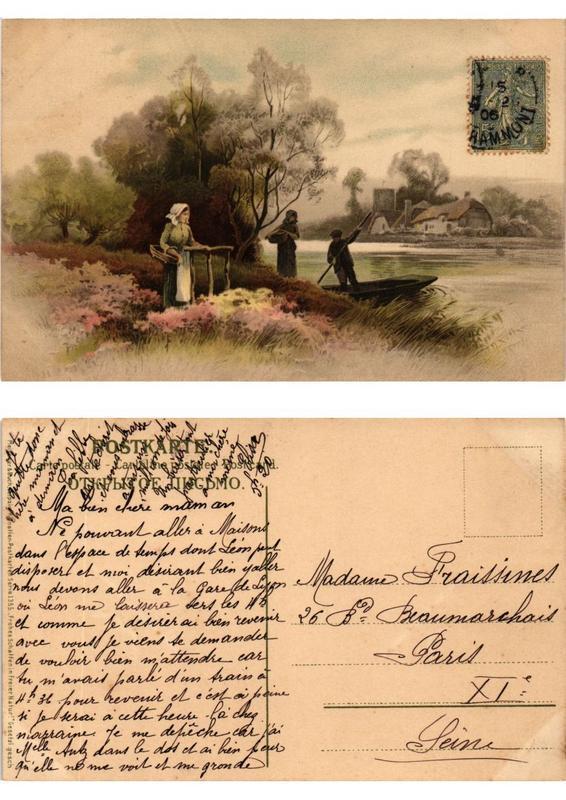 S
2
06
HAMMONT
POSTKARTE
Carte postale - Postcard.
ОТКРЫТОЕ ПИСЬМО.
Ma bien chère maman
Ne pouvant aller à Maisons
dans l'espace de temps dont Léon peut
disposer et moi désirant bien y aller
nous devons aller à la Gare de Lyon
où Léon me laissera vers les 4h
et comme je désirerai bien revenir
avec vous je viens te demander
de vouloir bien m'attendre car
tu m'avais parlé d'un train à
4h 36 pour revenir et c'est à peine
si je serai à cette heure là chez
marraine. Je me dépêche car j'ai
Melle dans le dos et ai bien peur
qu'elle ne me voit et me gronde
Je te
quitte donc
chère maman et
à demain
Madame Fraissines
26 Bd Beaumarchais
Paris
XIe
Seine
Serie 1355. "Frohes Schaffen in freier Natur" Gesetzl. gesch.